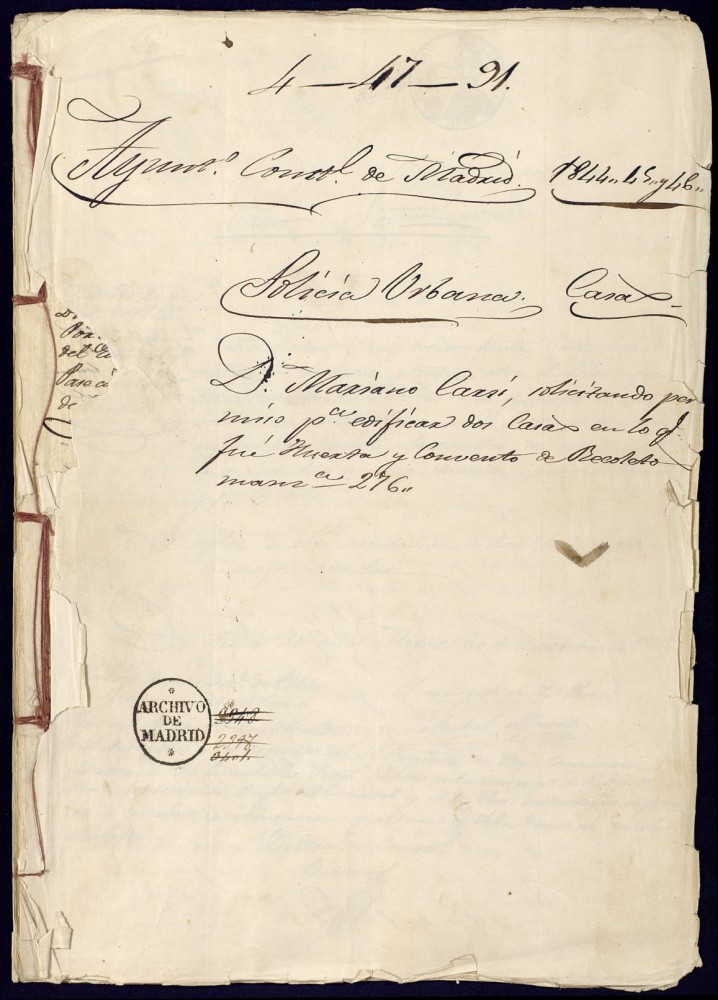 4 — 47 — 91.
Ayunt.º Const.l de Madrid. 1844,, 45,, y 46,,
Policía Urbana. Casas
D.n Mariano Carsi, solicitando per
miso p.a edificar dos Casas en lo q.e
fué Huerta y Convento de Recoletos
manz.a 276,,
Por
del
de
ARCHIVO
DE
MADRID